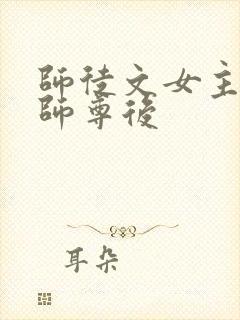 師徒文女主
師尊後
耳朵